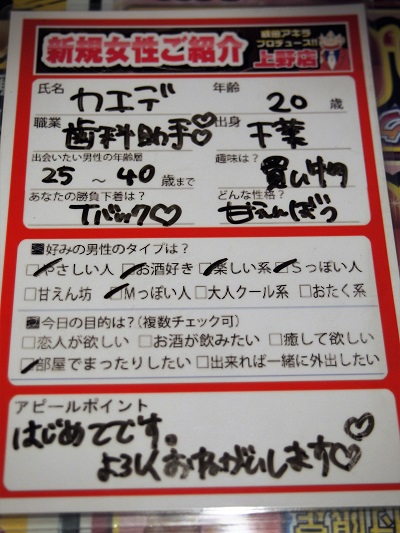 新規女性ご紹介
鈴田アキラ
プロデュース!!
上野店
氏名 カエデ 年齢 20 歳
職業 歯科助手♡ 出身 千葉
出会いたい男性の年齢層 25 ～ 40 歳まで 趣味は? 買い物
あなたの勝負下着は? Tバック♡ どんな性格? 甘えんぼう
好みの男性のタイプは?
☑やさしい人 ☑お酒好き ☑楽しい系 ☑Sっぽい人
□甘えん坊 ☑Mっぽい人 □大人クール系 □おたく系
今日の目的は?(複数チェック可)
□恋人が欲しい □お酒が飲みたい □癒して欲しい
☑部屋でまったりしたい □出来れば一緒に外出したい
アピールポイント
はじめてです。♡
よろしくおねがいします♡